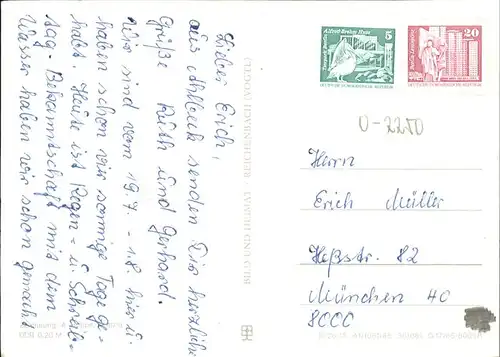 Lieber Erich,
aus Ahlbeck senden Dir herzliche
Grüße Ruth und Gerhard.
Wir sind vom 19.7. - 1.8. hier u.
haben schon vier sonnige Tage ge-
habt. Heute ist Regen- u. Schreib-
tag - Bekanntschaft mit dem
Wasser haben wir schon gemacht.
5
DEUTSCHE DEMOKRATISCHE REPUBLIK
20
DEUTSCHE DEMOKRATISCHE REPUBLIK
0-2250
Herrn
Erich Müller
Heßstr. 82
München 40
8000